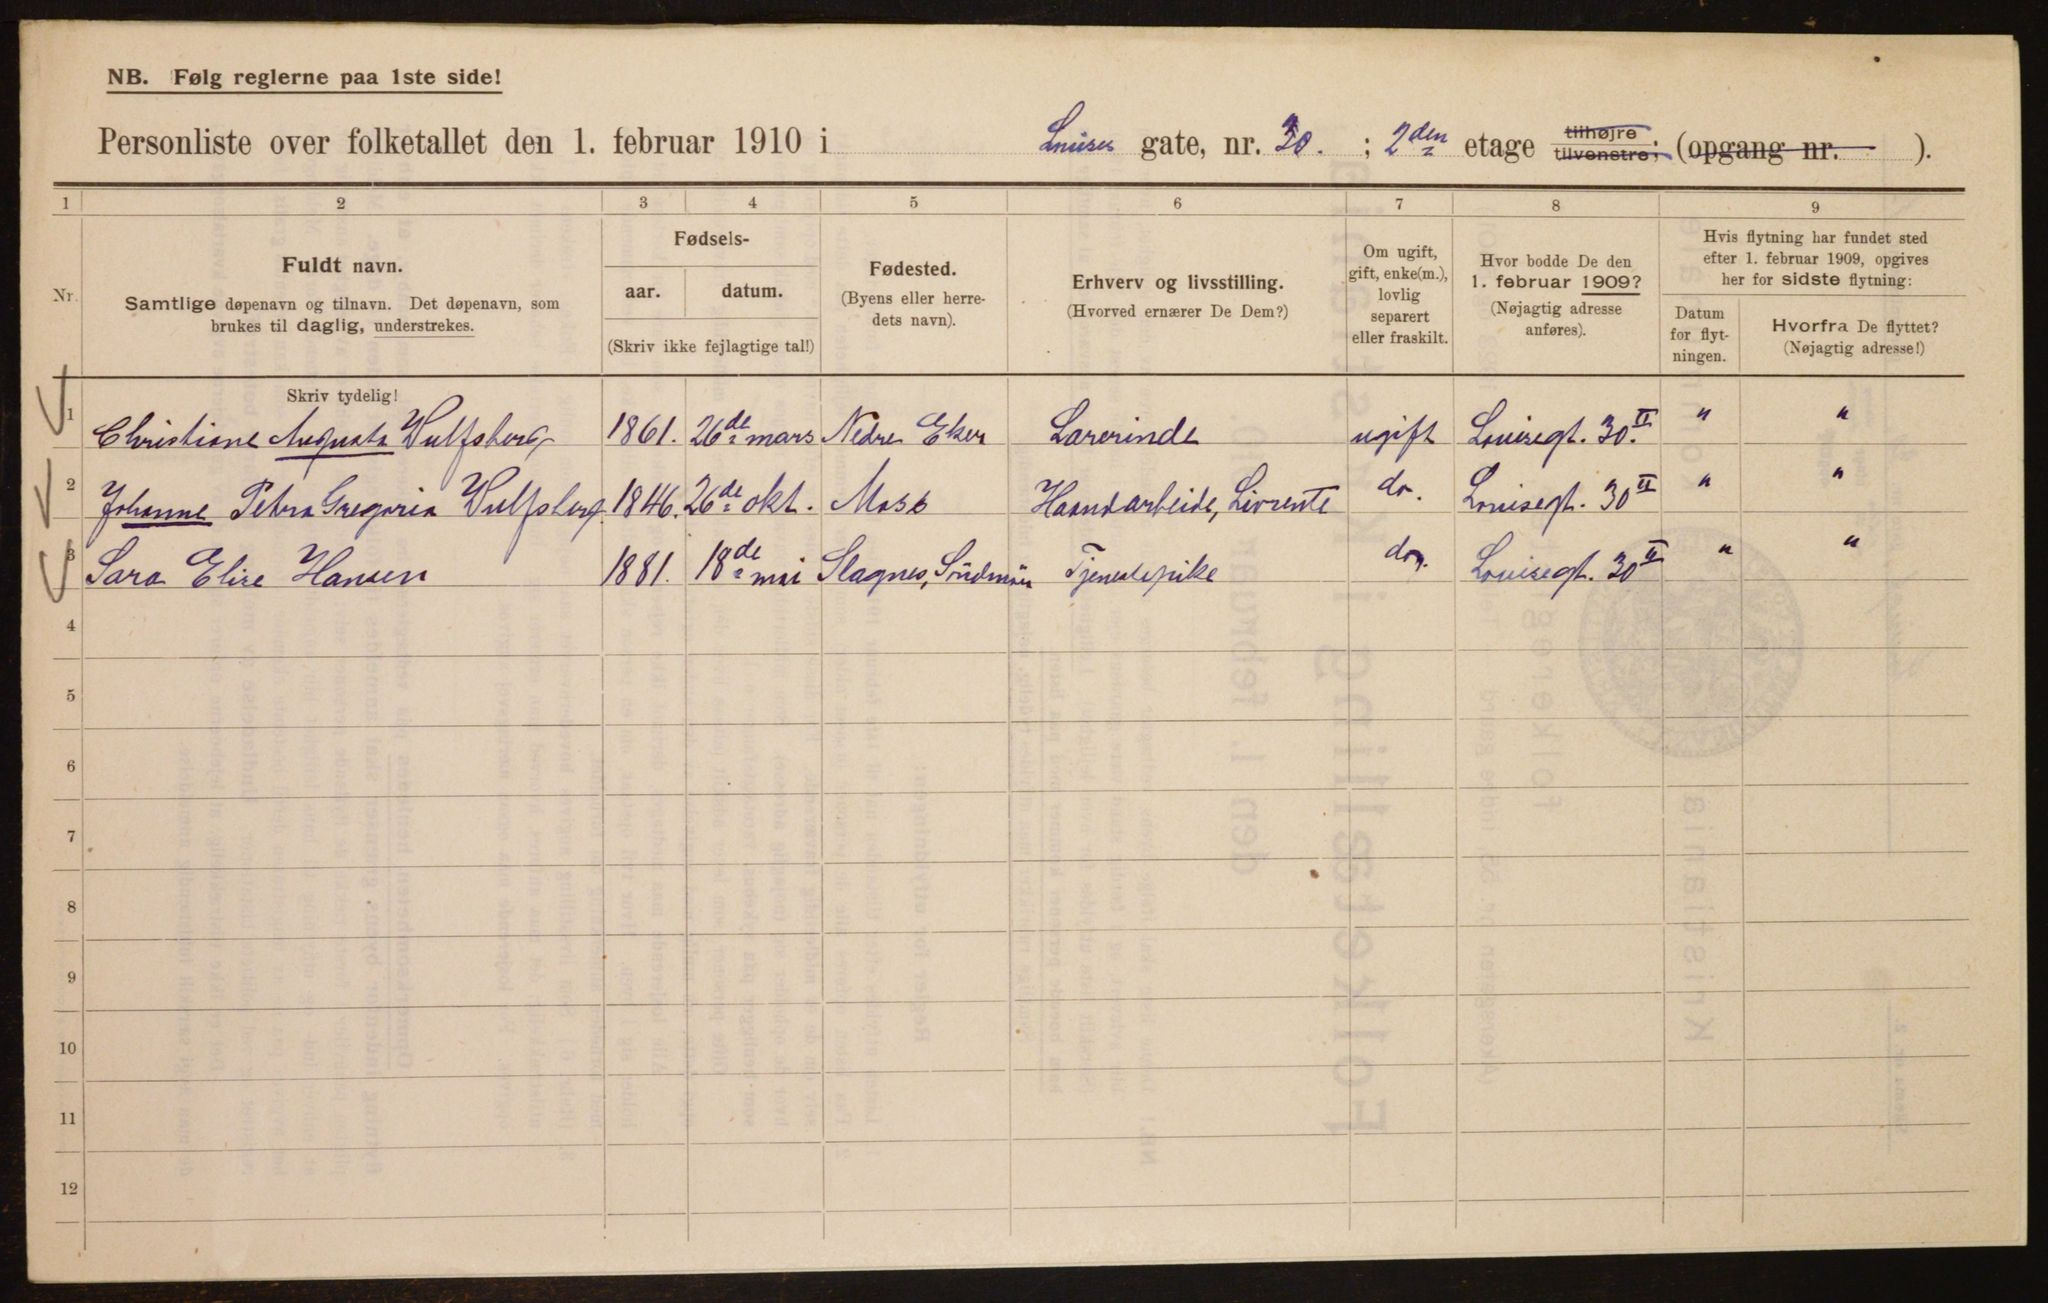 NB. Følg reglerne paa 1ste side!
Personliste over folketallet den 1. februar 1910 i Louises gate, nr. 30. ; 2den etage tilhøjre tilvenstre; (opgang nr. ).
1 2 3 4 5 6 7 8 9
Nr.
Fuldt navn.
Samtlige døpenavn og tilnavn. Det døpenavn, som
brukes til daglig, understrekes.
Fødsels-
aar. datum.
(Skriv ikke fejlagtige tal!)
Fødested.
(Byens eller herre-
dets navn).
Erhverv og livsstilling.
(Hvorved ernærer De Dem?)
Om ugift,
gift, enke(m.),
lovlig
separert
eller fraskilt.
Hvor bodde De den
1. februar 1909?
(Nøjagtig adresse
anføres).
Hvis flytning har fundet sted
efter 1. februar 1909, opgives
her for sidste flytning:
Datum
for flyt-
ningen.
Hvorfra De flyttet?
(Nøjagtig adresse!)
Skriv tydelig!
1 Christiane Augusta Wulfsberg 1861. 26de mars Nedre Eker Lærerinde ugift Louisegt. 30.II " "
2 Johanne Petra Gregoria Wulfsberg 1846. 26de okt. Moss Haandarbeide, Livrente do. Louisegt. 30II " "
3 Sara Elise Hansen 1881. 18de mai Slagnes, Söndmör Tjenestepike do. Louisegt. 30II " "
4
5
6
7
8
9
10
11
12